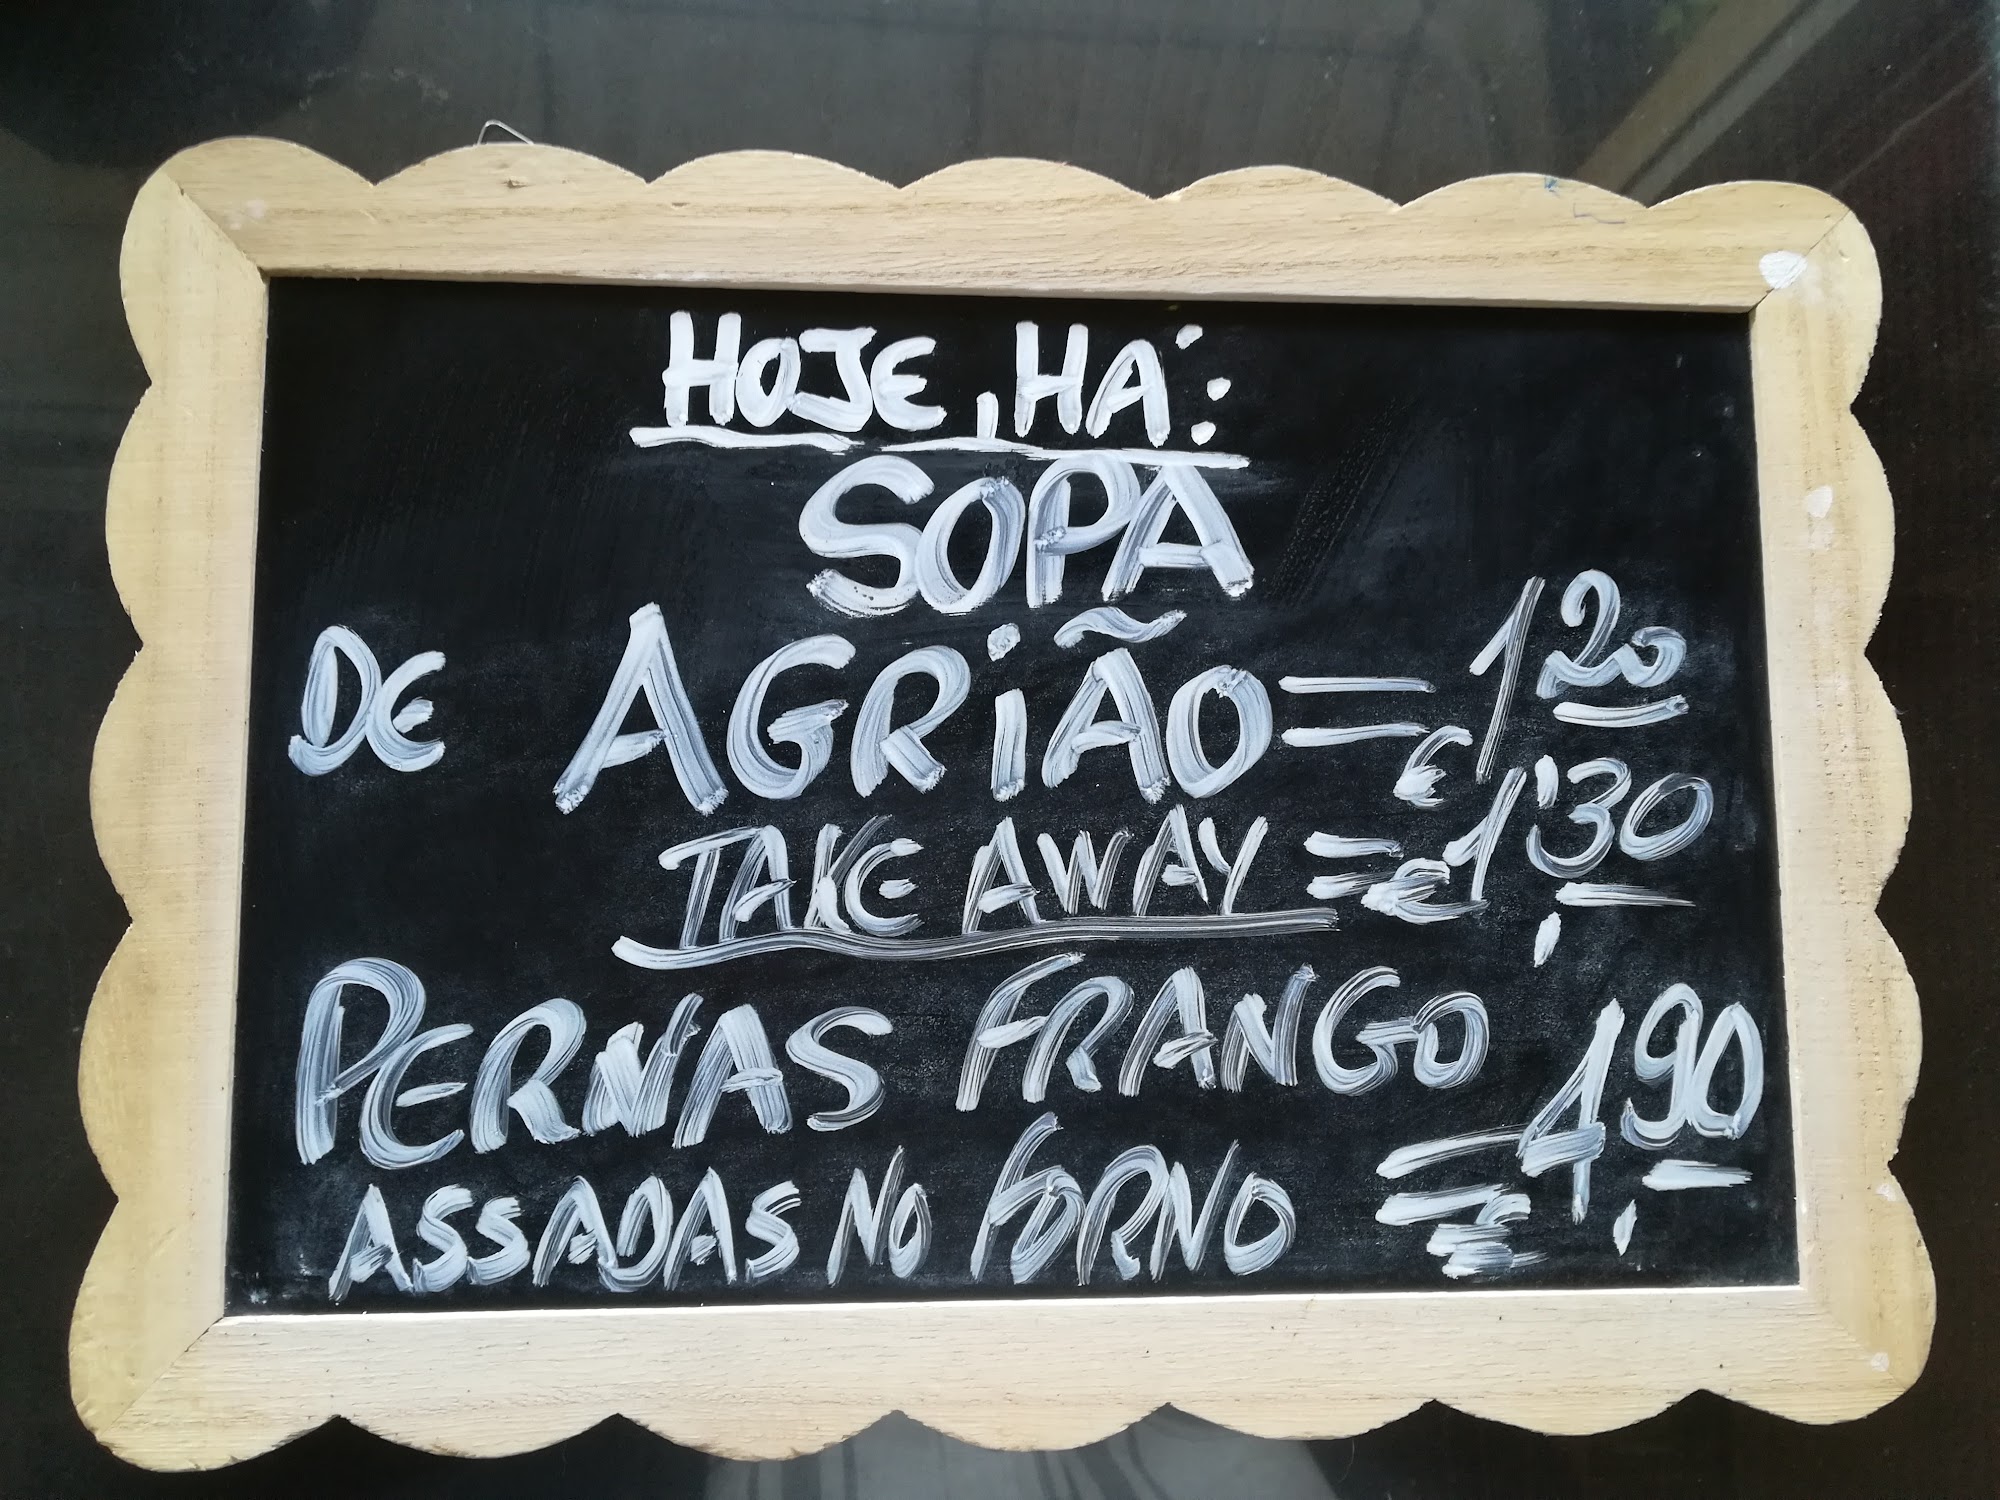 HOJE, HÁ:
SOPA
DE AGRIÃO = € 1,20
TAKE AWAY = € 1,30
PERNAS FRANGO
ASSADAS NO FORNO = € 4,90